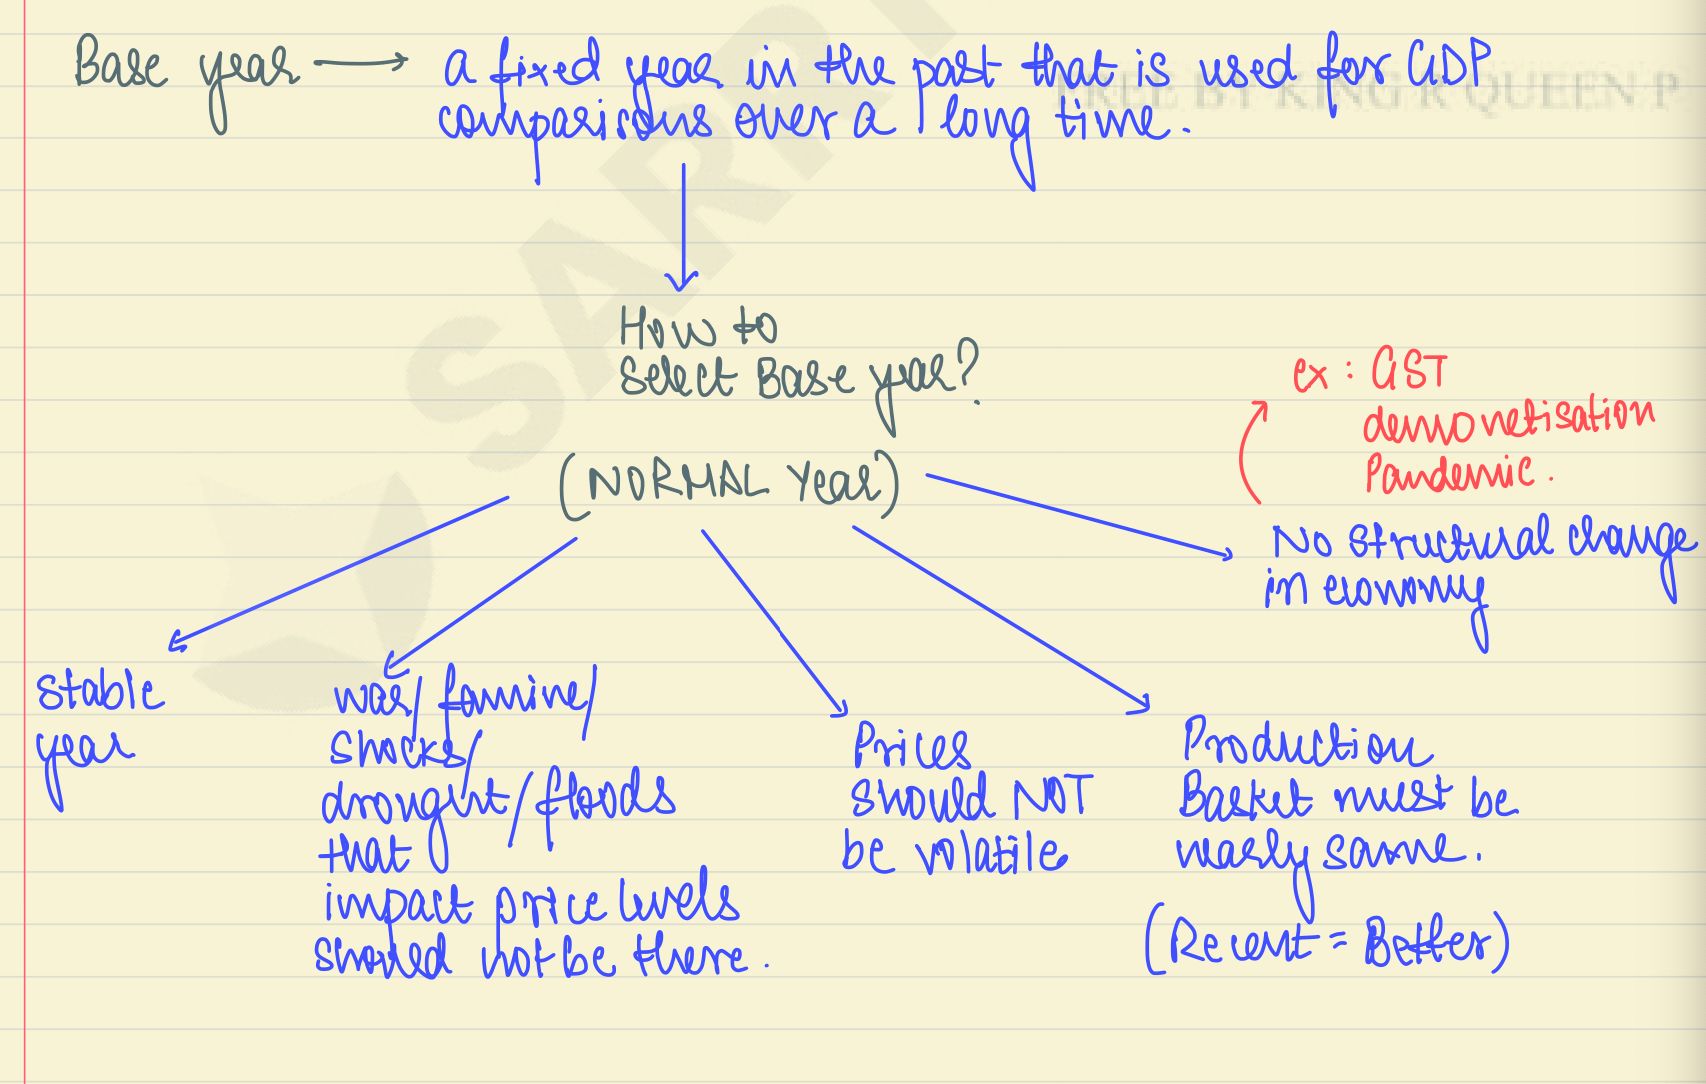 Base year → a fixed year in the past that is used for GDP
comparisons over a long time.
FREE BY KING R QUEEN P
How to
select Base year?
(NORMAL Year)
ex : GST
demonetisation
Pandemic.
No structural change
in economy
stable
year
war/famine/
shocks/
drought/floods
that
impact price levels
should not be there.
Prices
should NOT
be volatile
Production
Basket must be
nearly same.
(Recent = Better)